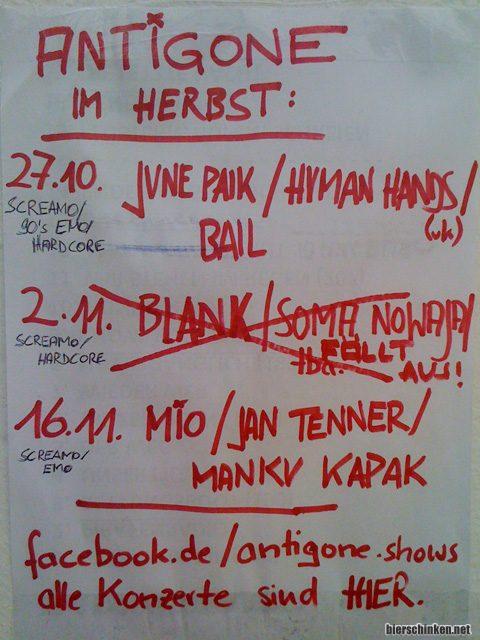 ANTIGONE
IM HERBST:
27.10. JUNE PAIK / HUMAN HANDS /
(uk)
BAIL
SCREAMO/
90's EMO/
HARDCORE
2.11. BLANK / SOMA NOWAJA/
tba.
FÄLLT
AUS!
SCREAMO/
HARDCORE
16.11. MIO / JAN TENNER /
MANKU KAPAK
SCREAMO/
EMO
facebook.de/antigone.shows
alle Konzerte sind HIER.
bierschinken.net